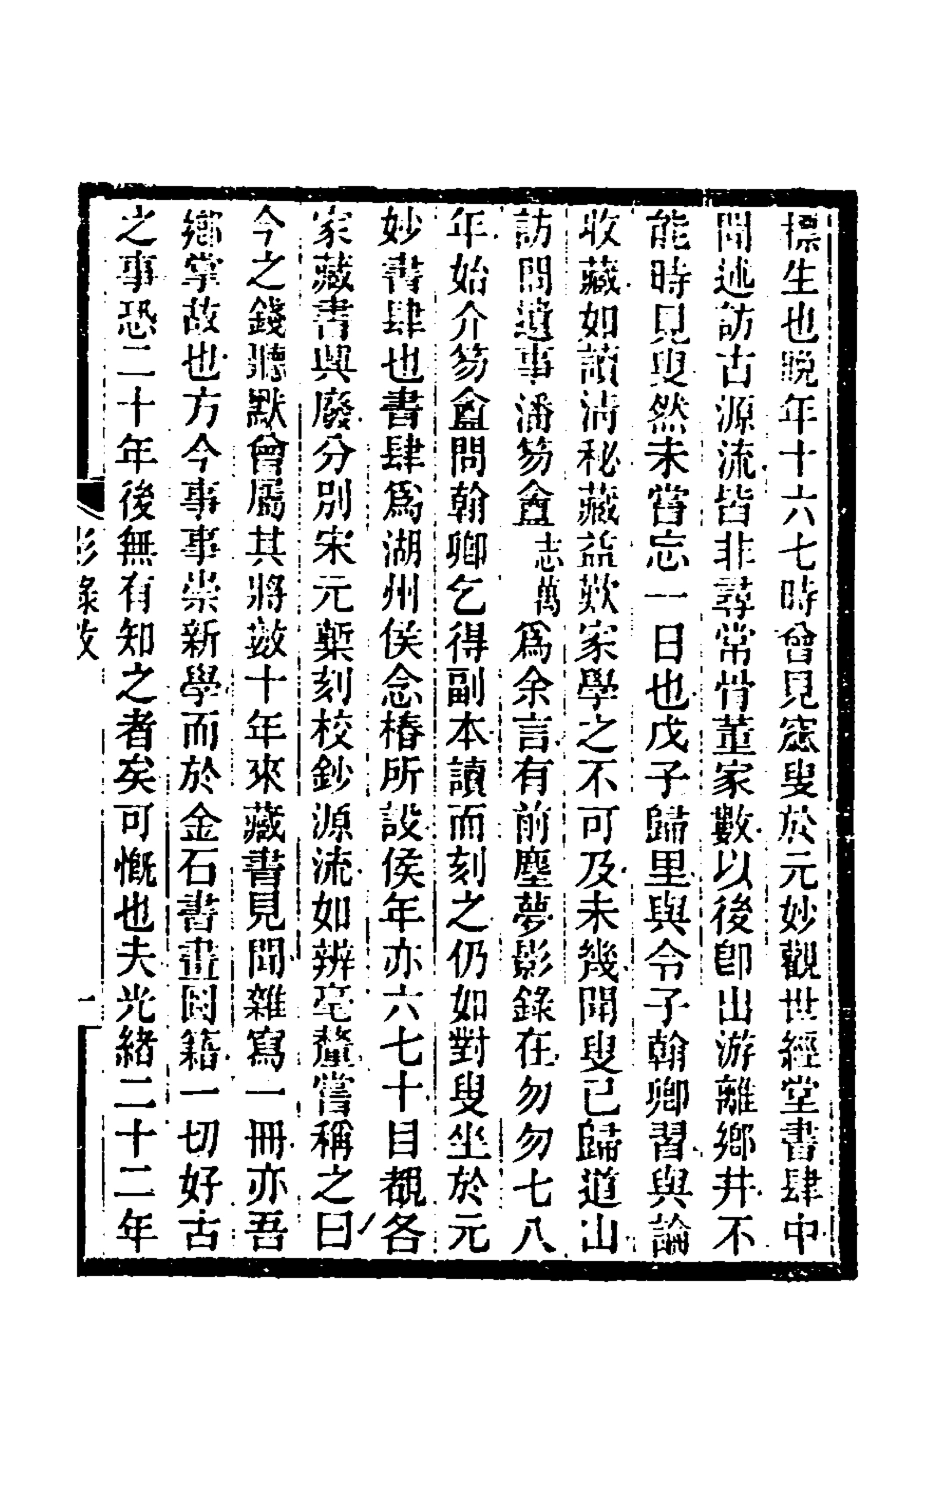 標生也晚年十六七時曾見窓叟於元妙觀世經堂書肆中
聞述訪古源流皆非尋常骨董家數以後卽出游離鄉井不
能時見叟然未嘗忘一日也戊子歸里與令子翰卿習與論
收藏如讀清秘藏益歎家學之不可及未幾聞叟已歸道山
訪問遺事潘笏盦志萬爲余言有前塵夢影錄在勿勿七八
年始介笏盦問翰卿乞得副本讀而刻之仍如對叟坐於元
妙書肆也書肆爲湖州侯念椿所設侯年亦六七十目覩各
家藏書興廢分別宋元槧刻校鈔源流如辨毫釐嘗稱之曰
今之錢聽默曾屬其將數十年來藏書見聞雜寫一冊亦吾
鄉掌故也方今事事崇新學而於金石書畫圖籍一切好古
之事恐二十年後無有知之者矣可慨也夫光緒二十二年
影錄敘
一